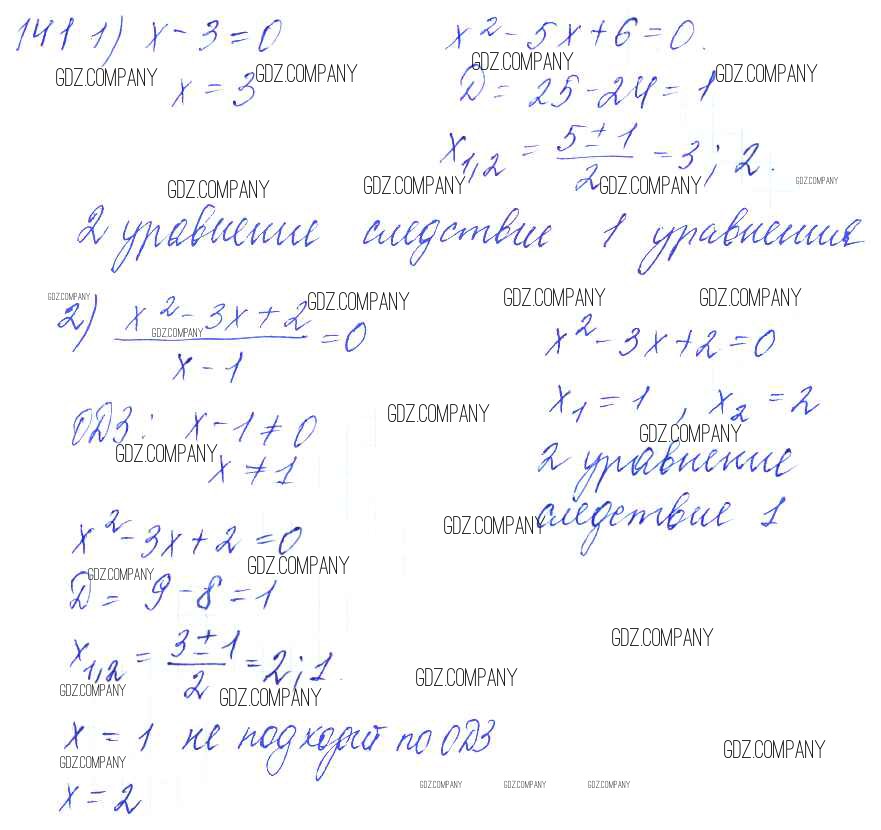 141 1) x - 3 = 0
x = 3
x² - 5x + 6 = 0.
D = 25 - 24 = 1
x₁,₂ = (5 ± 1)/2 = 3; 2.
GDZ.COMPANY GDZ.COMPANY GDZ.COMPANY GDZ.COMPANY
GDZ.COMPANY GDZ.COMPANY GDZ.COMPANY GDZ.COMPANY
2 уравнение следствие 1 уравнения
GDZ.COMPANY GDZ.COMPANY GDZ.COMPANY GDZ.COMPANY
2) (x² - 3x + 2)/(x - 1) = 0
GDZ.COMPANY
ОДЗ: x - 1 ≠ 0
GDZ.COMPANY
x ≠ 1
x² - 3x + 2 = 0
GDZ.COMPANY GDZ.COMPANY
D = 9 - 8 = 1
x₁,₂ = (3 ± 1)/2 = 2; 1.
GDZ.COMPANY GDZ.COMPANY
x = 1 не подходит по ОДЗ
GDZ.COMPANY
x = 2
x² - 3x + 2 = 0
x₁ = 1, x₂ = 2
GDZ.COMPANY GDZ.COMPANY
2 уравнение
следствие 1
GDZ.COMPANY
GDZ.COMPANY
GDZ.COMPANY
GDZ.COMPANY
GDZ.COMPANY GDZ.COMPANY GDZ.COMPANY